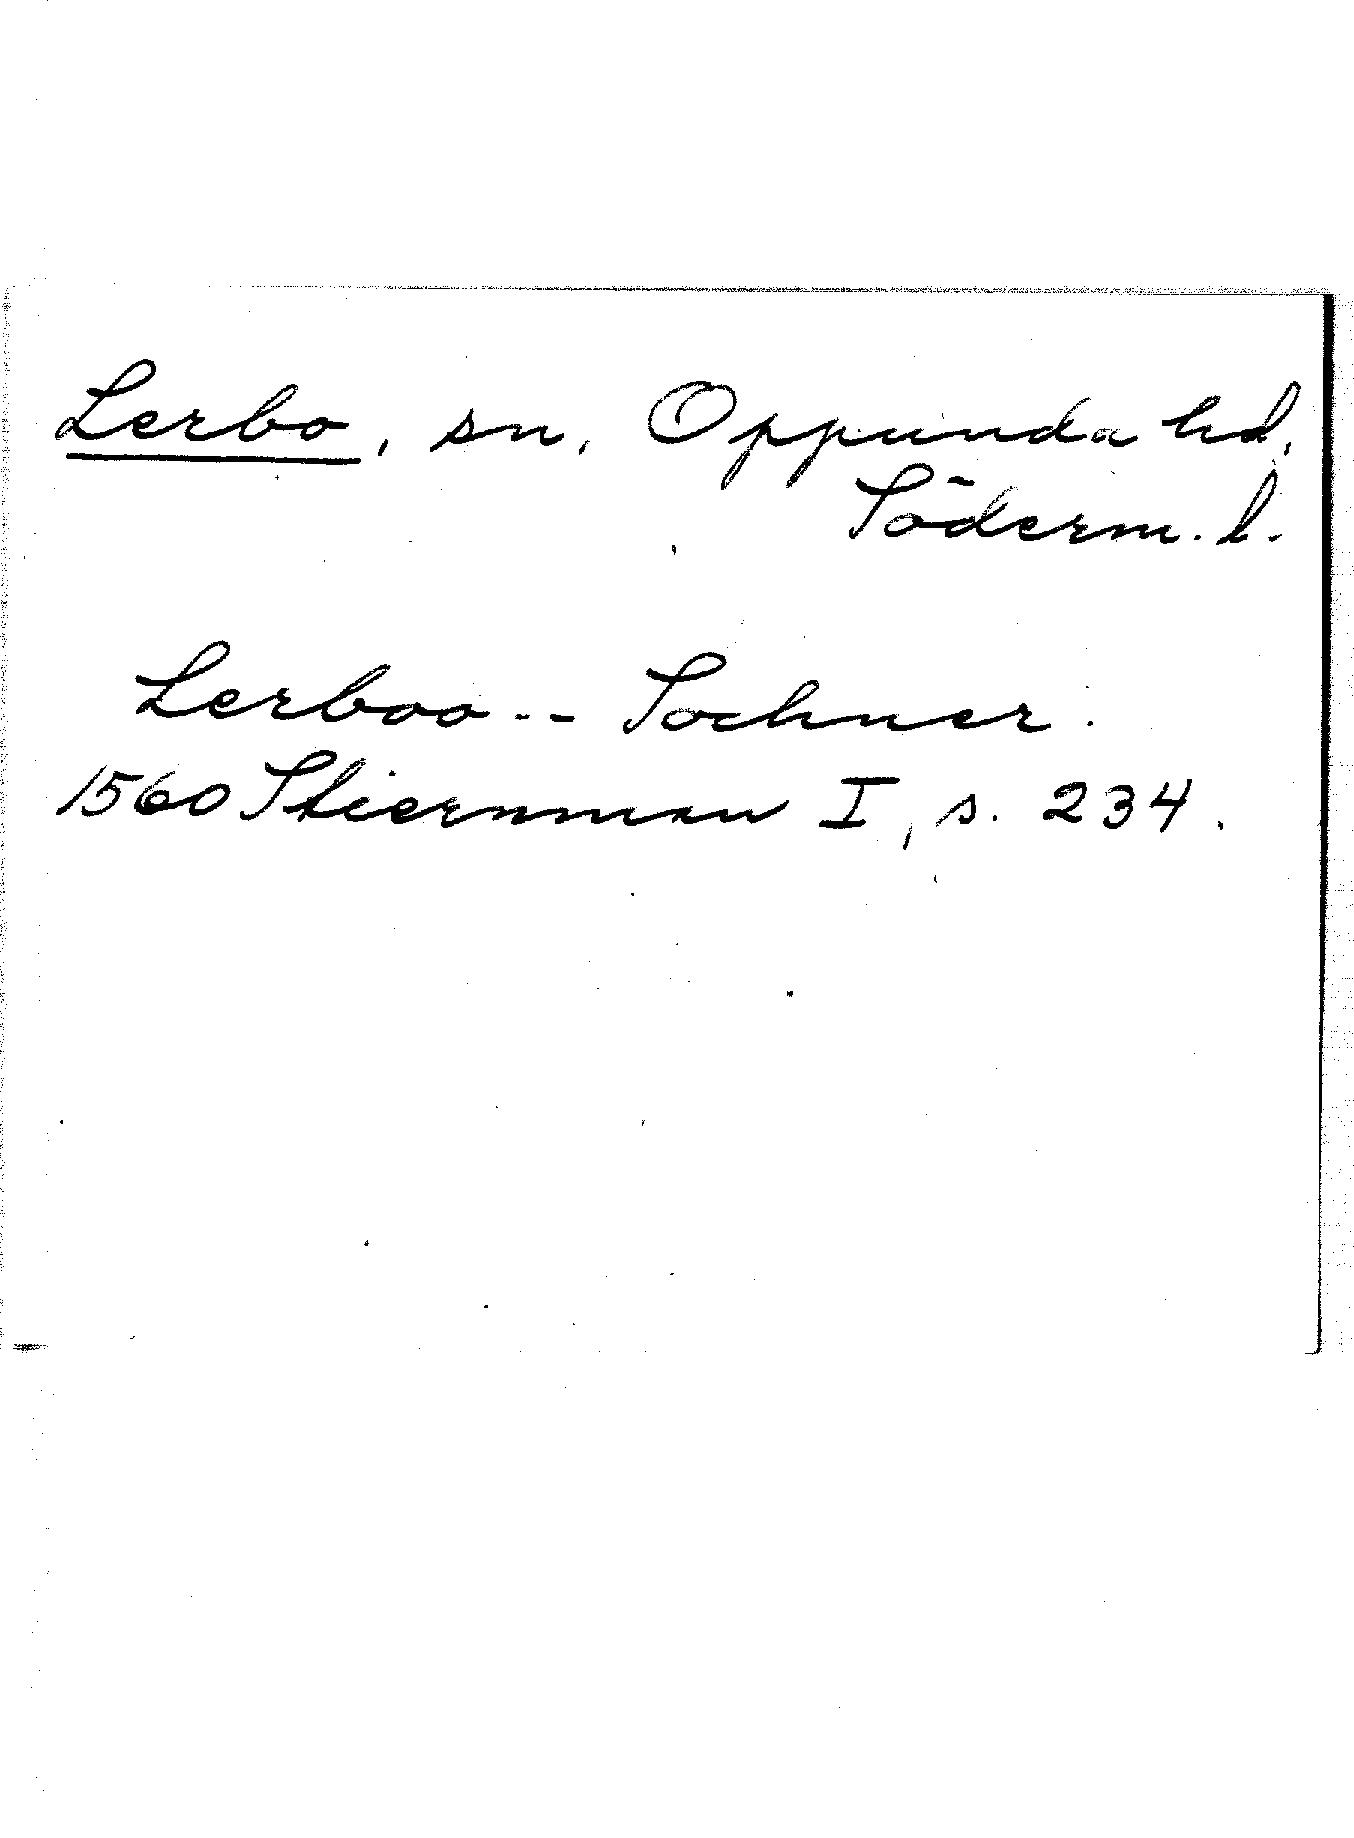 Lerbo, sn, Oppunda hd,
Söderm. l.
Lerboo -- Sochner.
1560 Stiernman I, s. 234.